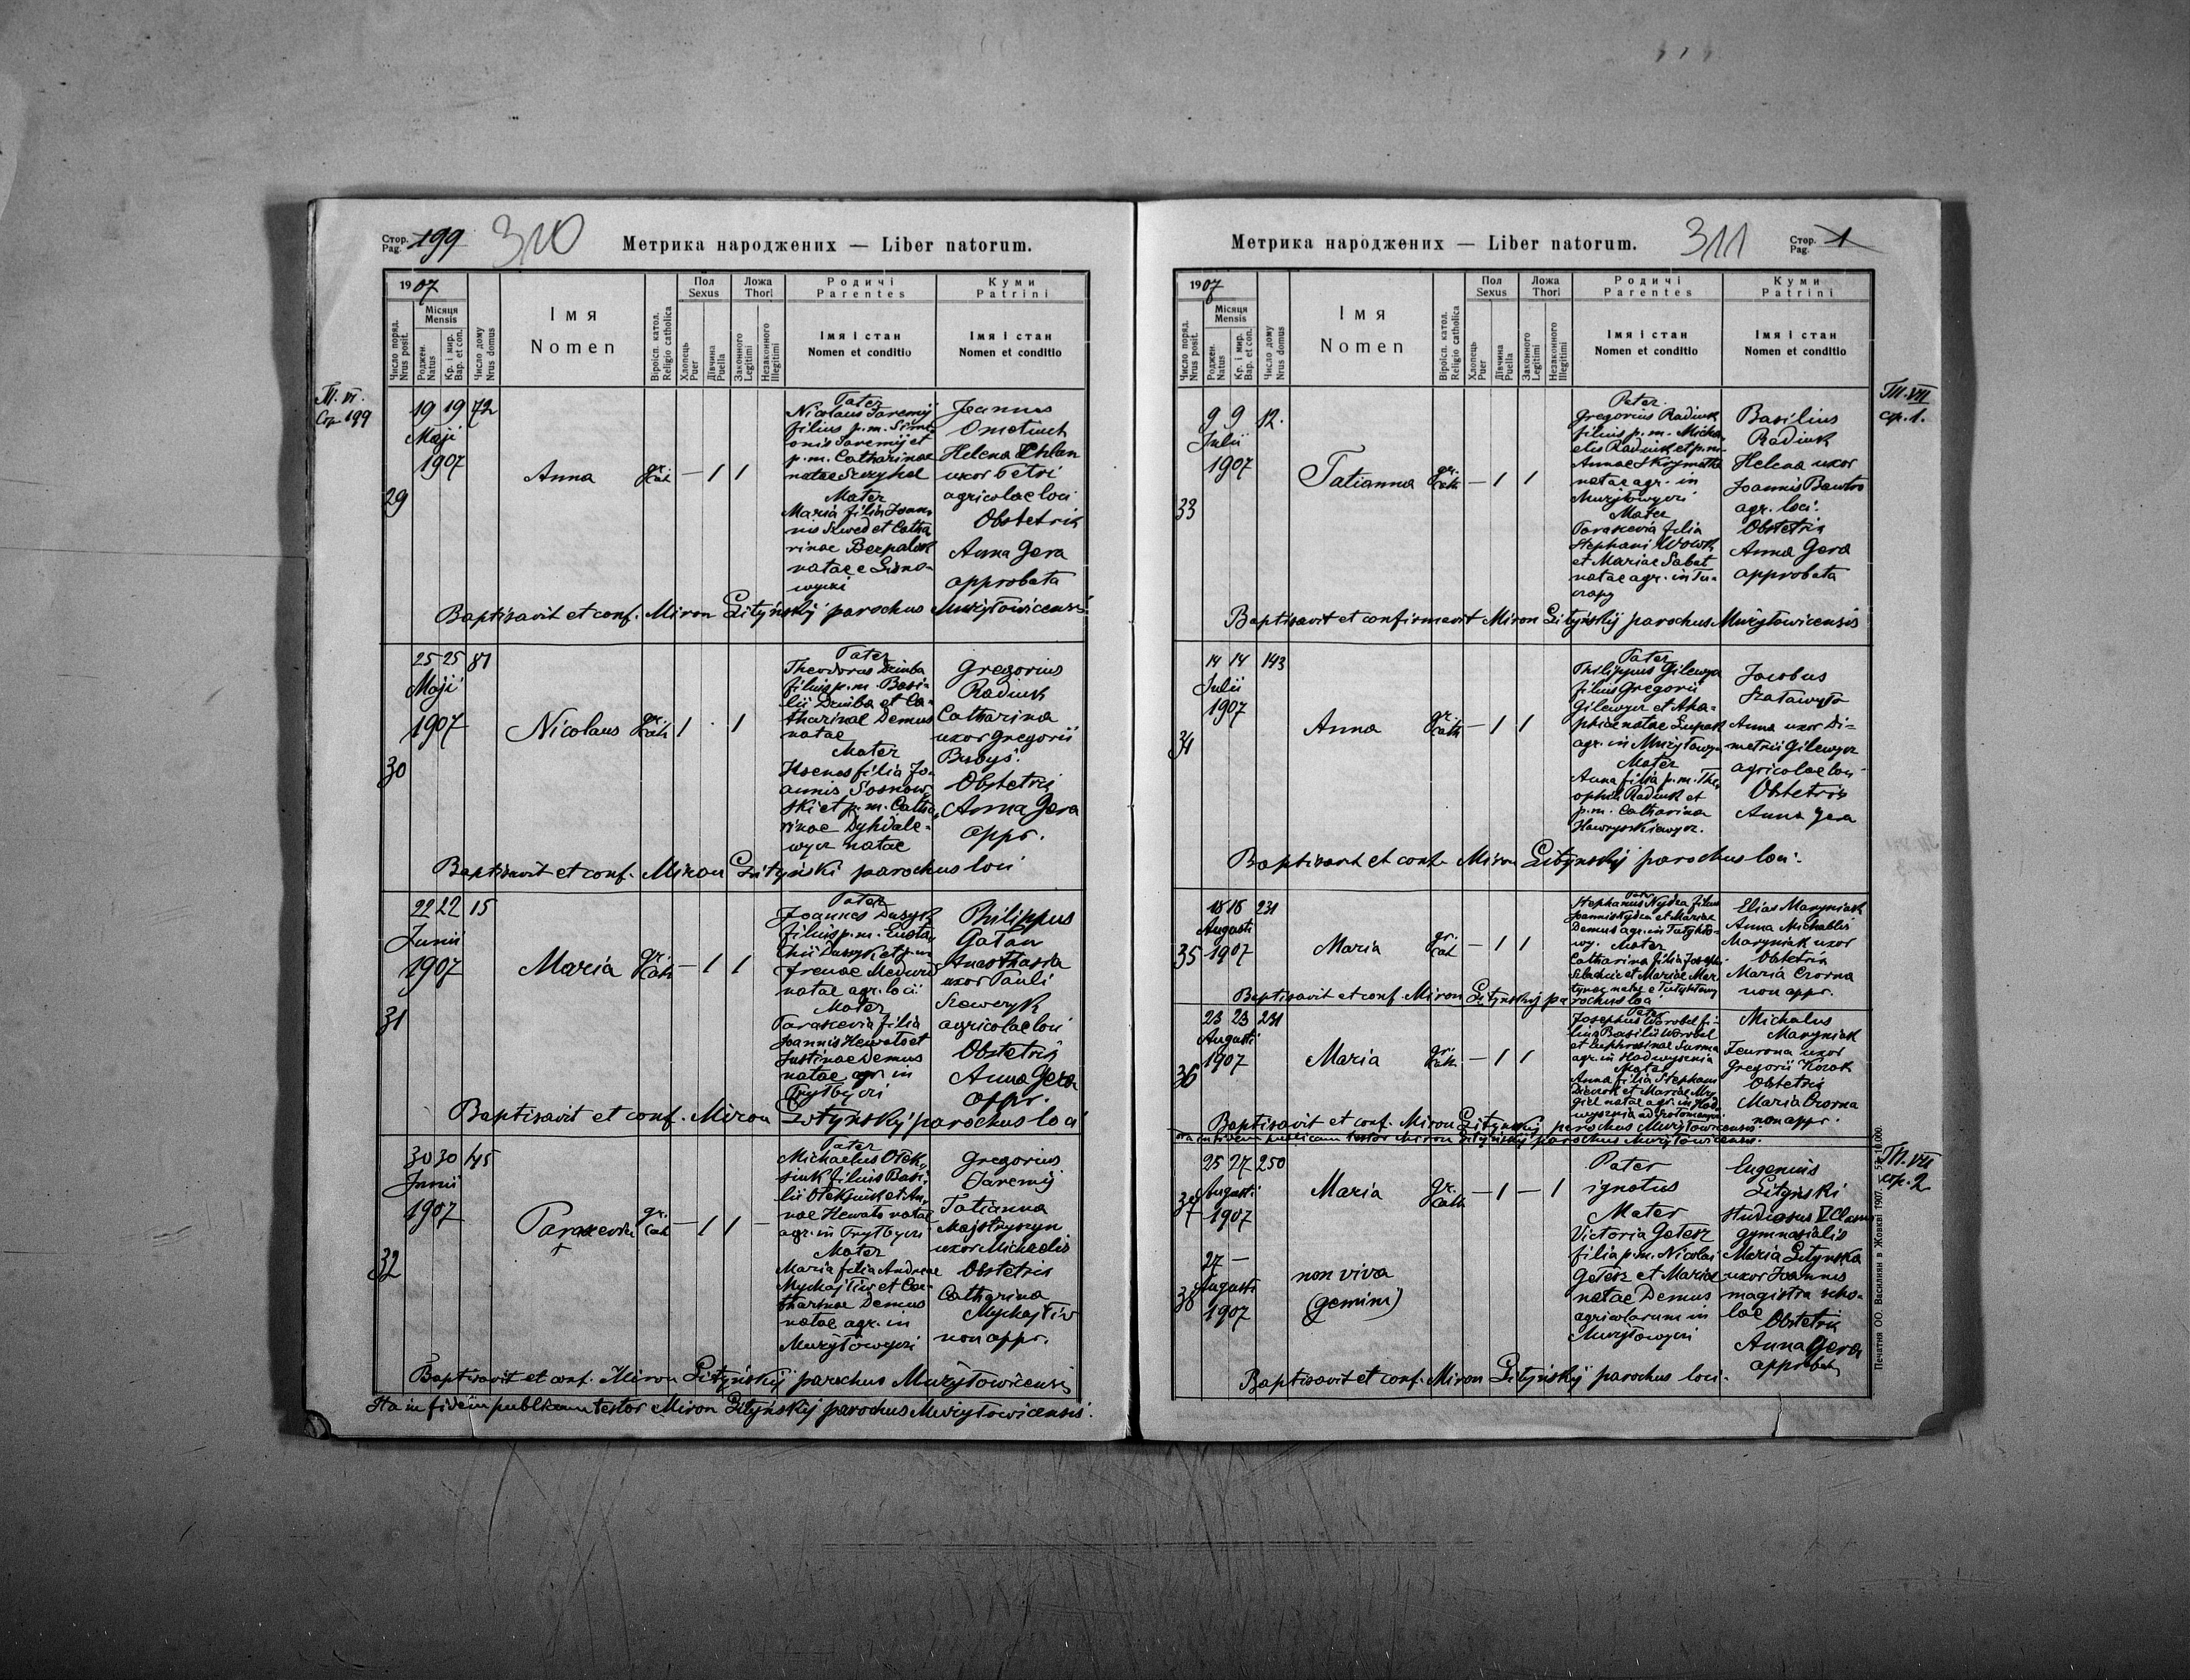 Стор.
Pag. 199
310
Метрика народжених — Liber natorum.
1907
Місяця
Mensis
Число поряд.
Nrus posit.
Роджен.
Natus
Кр. і мир.
Bap. et con.
Число дому
Nrus domus
Імя
Nomen
Віроісп. катол.
Religio catholica
Пол
Sexus
Хлопець
Puer
Дівчина
Puella
Ложа
Thori
Законного
Legitimi
Незаконного
Illegitimi
Родичі
Parentes
Імя і стан
Nomen et conditio
Куми
Patrini
Імя і стан
Nomen et conditio
Т. VI.
Стр. 199
29
19 19 72
Maji
1907
Anna
gr. cath
— 1 1
Pater
Nicolaus Jaremij
filius p.m. Sime-
onis Jaremij et
p.m. Catharinae
natae
Mater
Maria filia Joan-
nis Szwed et Catha
rinae
natae e
wyczi
Joannes
Helena
uxor Petri
agricolae loci
Obstetrix
Anna Gera
approbata
Baptisavit et conf. Miron Lityńskij parochus Mużyłowicensis
30
25 25 81
Maji
1907
Nicolaus
gr. cath
1 . 1
Pater
Theodorus Dziuba
filius p.m. Basi-
lii Dziuba et Ca-
tharinae Demus
natae
Mater
Xsenes filia Jo-
annis Sosnow-
ski et p.m. Catha-
rinae Dyhdale-
wycz natae
Gregorius
Radiuk
Catharina
uxor Gregorii
Bubyś.
Obstetrix
Anna Gera
appr.
Baptisavit et conf. Miron Lityński parochus loci
31
22 22 15
Junii
1907
Maria
gr. cath
— 1 1
Pater
Joannes Dusyk
filius p.m. Eusta-
chii Dusyk et p.m
Irenae
natae agr. loci
Mater
Parascevia filia
Joannis Hewało et
Justinae Demus
natae agr. in
Trytbyczi
Philippus
Gałan
Anasthasia
uxor Pauli
Szeweryk
agricolae loci
Obstetrix
Anna Gera
appr.
Baptisavit et conf. Miron Lityńskij parochus loci
32
30 30 145
Junii
1907
Parascevia
+
gr. cath
— 1 1 —
Pater
Michaelus Ołek-
siuk filius Basi-
lii Ołeksiuk et An-
nae Hewało natae
agr. in Trytbyczi
Mater
Maria filia Andreae
Mychajłiw et Ca-
tharinae Demus
natae agr. in
Mużyłowyczi
Gregorius
Jaremij
Tatianna
Majstryszyn
uxor Michaelis
Obstetrix
Catharina
Mychajłiw
non appr.
Baptisavit et conf. Miron Lityńskij parochus Mużyłowicensis
Ita in fidem publicam testor Miron Lityńskij parochus Mużyłowicensis.
Метрика народжених — Liber natorum.
311
Стор.
Pag. 1
1907
Місяця
Mensis
Число поряд.
Nrus posit.
Роджен.
Natus
Кр. і мир.
Bap. et con.
Число дому
Nrus domus
Імя
Nomen
Віроісп. катол.
Religio catholica
Пол
Sexus
Хлопець
Puer
Дівчина
Puella
Ложа
Thori
Законного
Legitimi
Незаконного
Illegitimi
Родичі
Parentes
Імя і стан
Nomen et conditio
Куми
Patrini
Імя і стан
Nomen et conditio
Т. VII
ср. 1.
33
9 9 12.
Julii
1907
Tatianna
gr. cath
— 1 1
Pater
Gregorius Radiuk
filius p.m. Micha-
elis Radiuk et p.m.
Annae
natae agr. in
Mużyłowyczi
Mater
Parascevia filia
Stephani Wowk
et Mariae Sabat
natae agr. in Tu-
czapy
Basilius
Radiuk
Helena uxor
Joannis
agr. loci.
Obstetrix
Anna Gera
approbata
Baptisavit et confirmavit Miron Lityńskij parochus Mużyłowicensis
34
14 14 143
Julii
1907
Anna
gr. cath
— 1 1
Pater
Philippus Gilewycz
filius Gregorii
Gilewycz et Aha-
phiae natae
agr. in Mużyłowyczi
Mater
Anna filia p.m. The-
ophili Radiuk et
p.m. Catharinae
Hawryszkiewycz.
Jacobus
Szaławyło
Anna uxor Di-
metrii Gilewycz
agricolae loci
Obstetrix
Anna Gera
Baptisavit et conf. Miron Lityńskij parochus loci.
35
18 18 231
Augusti
1907
Maria
gr. cath
— 1 1
Pater
Stephanus Nydza filius
Joannis Nydza et Mariae
Demus agr. in
wy. Mater
Catharina filia Josephi
et Mariae Mar-
Elias Maryniak
Anna Michaelis
Maryniak uxor
Obstetrix
Maria Czorna
non appr.
Baptisavit et conf. Miron Lityńskij parochus loci
36
23 23 231
Augusti
1907
Maria
gr. cath
— 1 1
Pater
Josephus Worobel fi-
lius Basilii Worobel
et Euphrosinae Surma
agr. in Hodwysznia
Mater
Anna filia Stephani
et Mariae
natae agr. in Hod-
wysznia
Michalus
Maryniak
Feurona uxor
Gregorii Kozak
Obstetrix
Maria Czorna
non appr.
Baptisavit et conf. Miron Lityńskij parochus Mużyłowicensis
Ita in fidem publicam testor Miron Lityńskij parochus Mużyłowicensis.
Т. VII
стр. 2
37
25 27 250
Augusti
1907
Maria
gr. cath
— 1 — 1
38
27 —
Augusti
1907
non viva
(gemini)
Pater
ignotus
Mater
Victoria Gełesz
filia p.m. Nicolai
Gełesz et Mariae
natae Demus
agricolarum in
Mużyłowyczi
Eugenius
Lityński
studiosus V Classis
gymnasialis
Maria Lityńska
uxor Joannis
magistra scho-
lae
Obstetrix
Anna Gera
approbata
Baptisavit et conf. Miron Lityńskij parochus loci.
Печатня ОО. Василиян в Жовкві 1907.